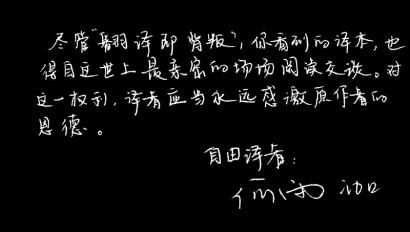 尽管“翻译即背叛”，你看到的译本，也
得自这世上最亲密的场场阅读交谈。对
这一权利，译者应当永远感激原作者的
恩德。
自由译者：